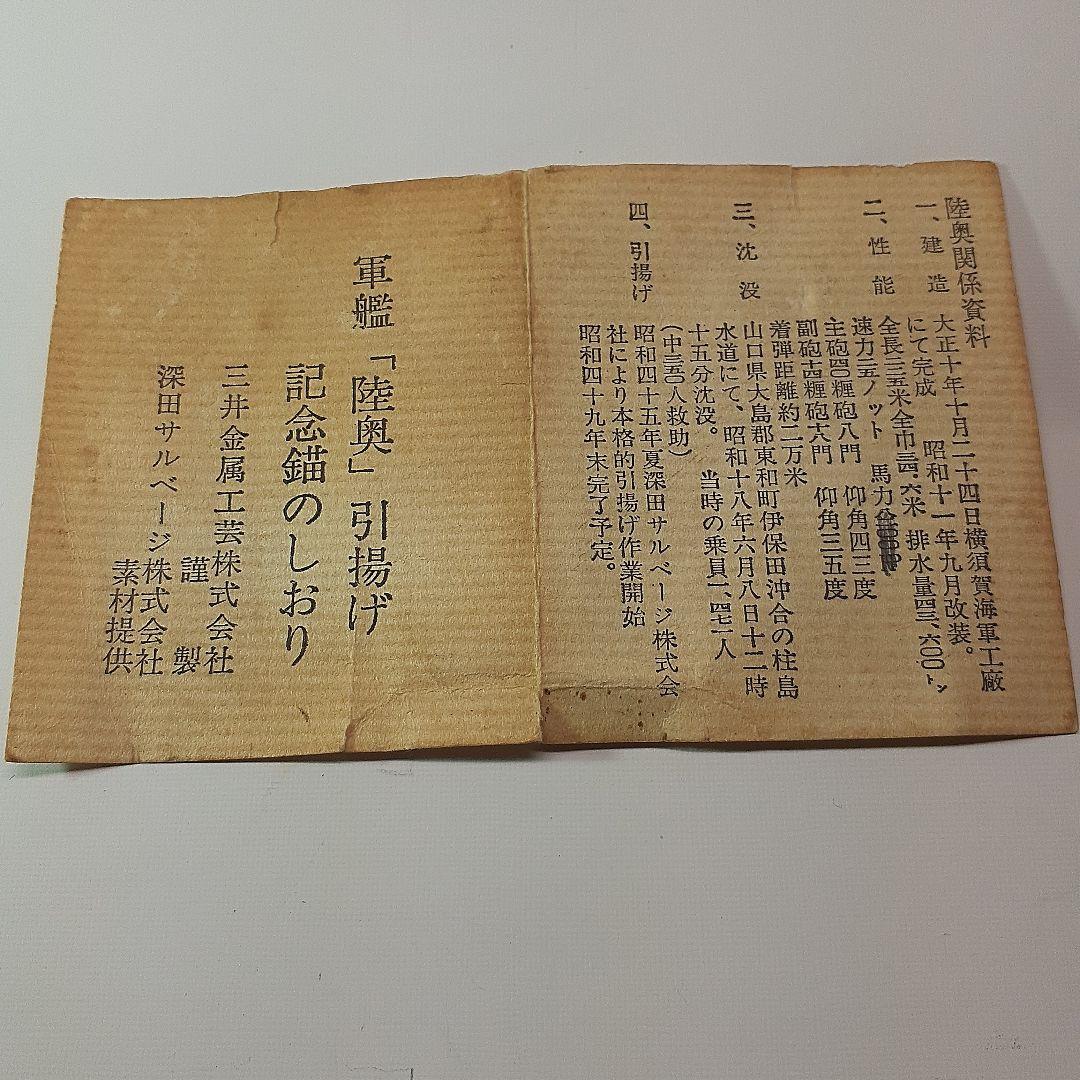 陸奥関係資料
一、建造 大正十年十月二十四日横須賀海軍工廠
にて完成 昭和十一年九月改装。
二、性能 全長二二五米全巾三四、六米 排水量四三、六〇〇トン
速力二五ノット 馬力
主砲四〇糎砲八門 仰角四三度
副砲十四糎砲十六門 仰角三五度
着弾距離約二万米
三、沈没 山口県大島郡東和町伊保田沖合の柱島
水道にて、昭和十八年六月八日十二時
十五分沈没。 当時の乗員一、四七一人
(中三五〇人救助)
四、引揚げ 昭和四十五年夏深田サルベージ株式会
社により本格的引揚げ作業開始
昭和四十九年末完了予定。
軍艦「陸奥」引揚げ
記念錨のしおり
三井金属工芸株式会社
謹製
深田サルベージ株式会社
素材提供